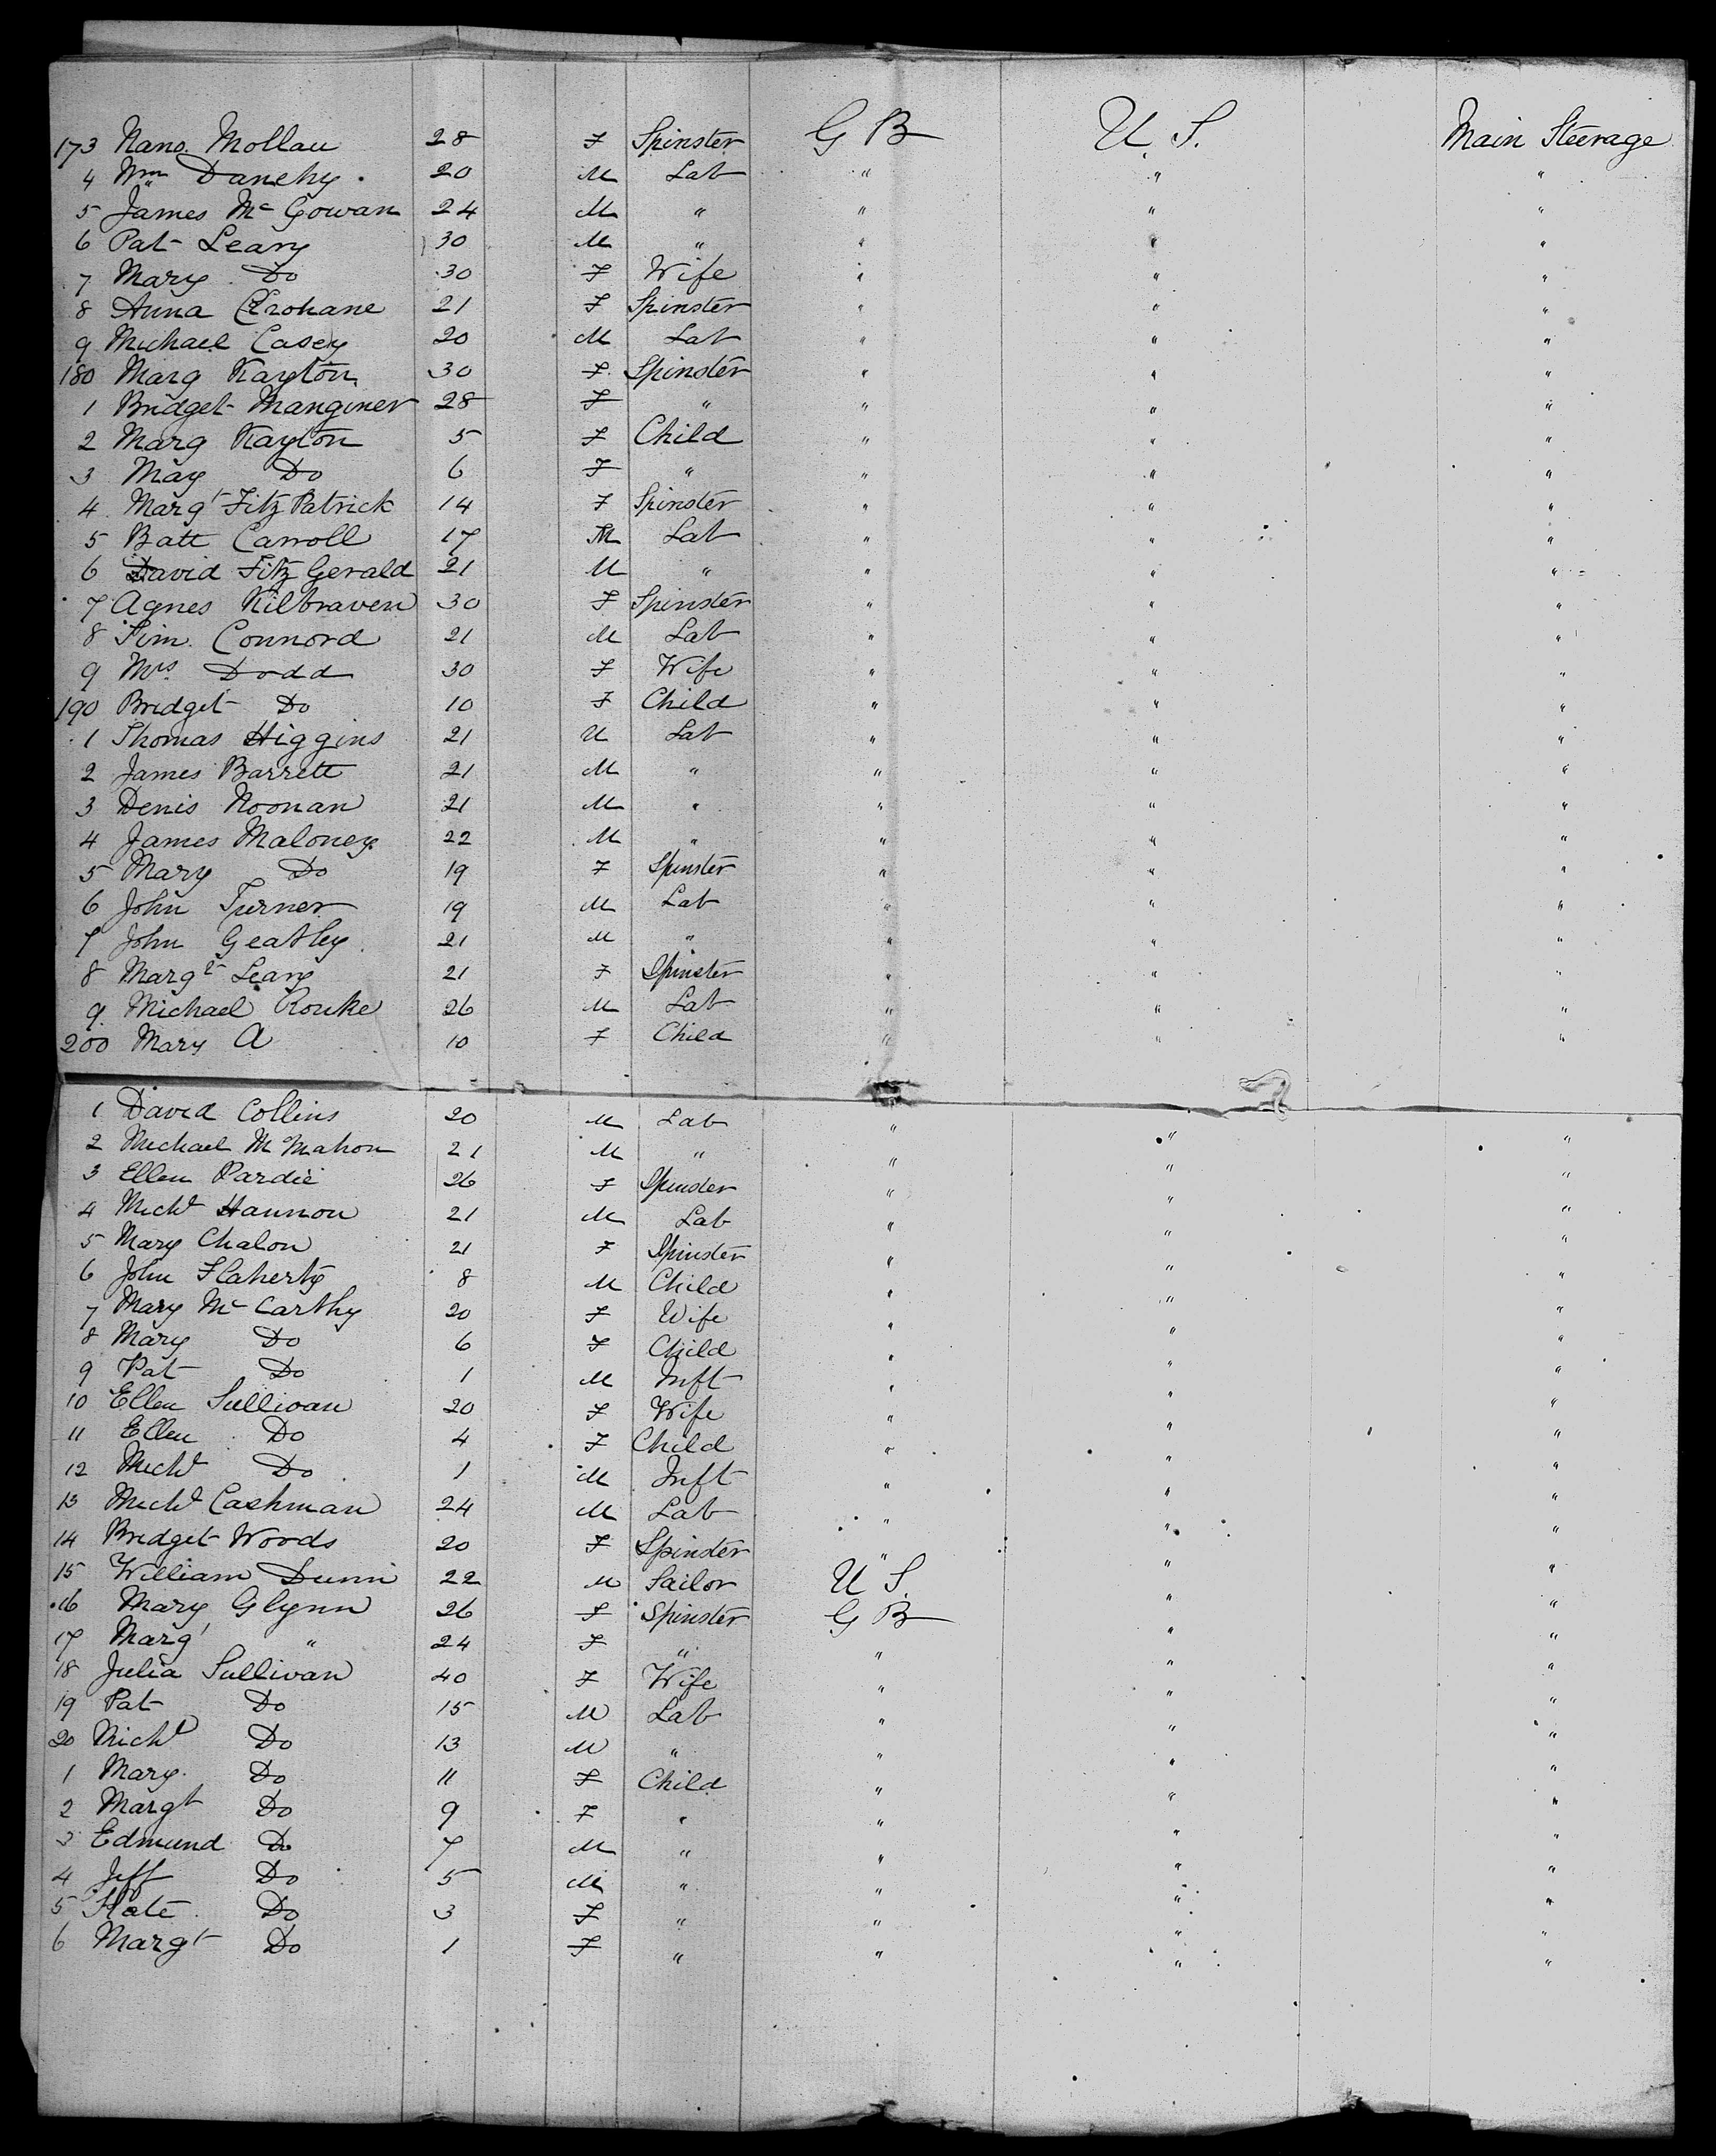 173 Nano Mollau 28 F Spinster G B U. S. Main Steerage
4 Wm Danehy. 20 M Lab " " "
5 James Mc Gowan 24 M " " " "
6 Pat Leary 30 M " " " "
7 Mary Do 30 F Wife " " "
8 Anna Crohane 21 F Spinster " " "
9 Michael Casey 20 M Lab " " "
180 Marg Kayton 30 F Spinster " " "
1 Bridget Manginer 28 F " " " "
2 Marg Kayton 5 F Child " " "
3 May Do 6 F " " " "
4 Margt Fitz Patrick 14 F Spinster " " "
5 Batt Carroll 17 M Lab " " "
6 David Fitz Gerald 21 M " " " "
7 Agnes Kilbraven 30 F Spinster " " "
8 Tim Connord 21 M Lab " " "
9 Mrs. Dodd 30 F Wife " " "
190 Bridget Do 10 F Child " " "
1 Thomas Higgins 21 M Lab " " "
2 James Barrett 21 M " " " "
3 Denis Noonan 21 M " " " "
4 James Maloney 22 M " " " "
5 Mary Do 19 F Spinster " " "
6 John Turner 19 M Lab " " "
7 John Geathey 21 M " " " "
8 Margt Leary 21 F Spinster " " "
9 Michael Rouke 26 M Lab " " "
200 Mary A 10 F Child " " "
1 David Collins 20 M Lab " " "
2 Michael McMahon 21 M " " " "
3 Ellen Pardie 26 F Spinster " " "
4 Michl Hannon 21 M Lab " " "
5 Mary Chalon 21 F Spinster " " "
6 John Flaherty 8 M Child " " "
7 Mary Mc Carthy 20 F Wife " " "
8 Mary Do 6 F Child " " "
9 Pat Do 1 M Inft " " "
10 Ellen Sullivan 20 F Wife " " "
11 Ellen Do 4 F Child " " "
12 Michl Do 1 M Inft " " "
13 Michl Cashman 24 M Lab " " "
14 Bridget Woods 20 F Spinster " " "
15 William Dunn 22 M Sailor U S. " "
16 Mary Glynn 26 F Spinster G B " "
17 Margt " 24 F " " " "
18 Julia Sullivan 40 F Wife " " "
19 Pat Do 15 M Lab " " "
20 Michl Do 13 M " " " "
1 Mary Do 11 F Child " " "
2 Margt Do 9 F " " " "
3 Edmund Do 7 M " " " "
4 Jeff Do 5 M " " " "
5 Kate Do 3 F " " " "
6 Margt Do 1 F " " " "